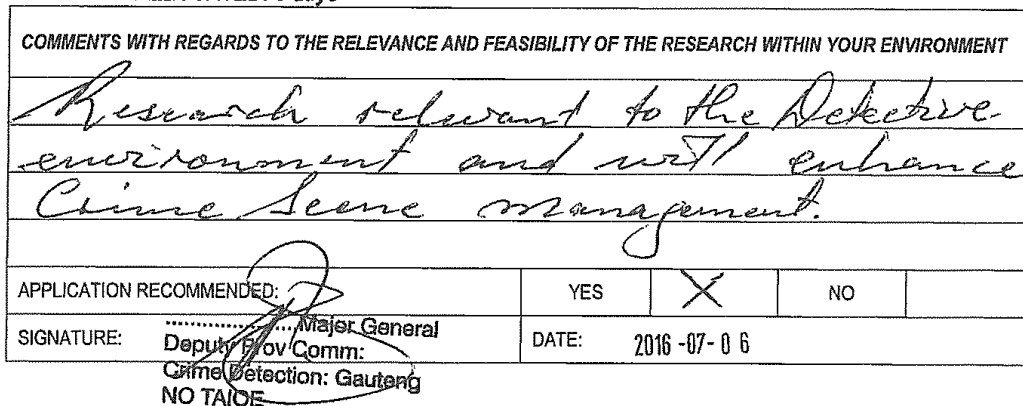 COMMENTS WITH REGARDS TO THE RELEVANCE AND FEASIBILITY OF THE RESEARCH WITHIN YOUR ENVIRONMENT
Research relevant to the Detective
environment and will enhance
Crime Scene management.
APPLICATION RECOMMENDED: YES X NO
SIGNATURE: ..................Major General DATE: 2016-07-06
Deputy Prov Comm:
Crime Detection: Gauteng
NO TAIOE